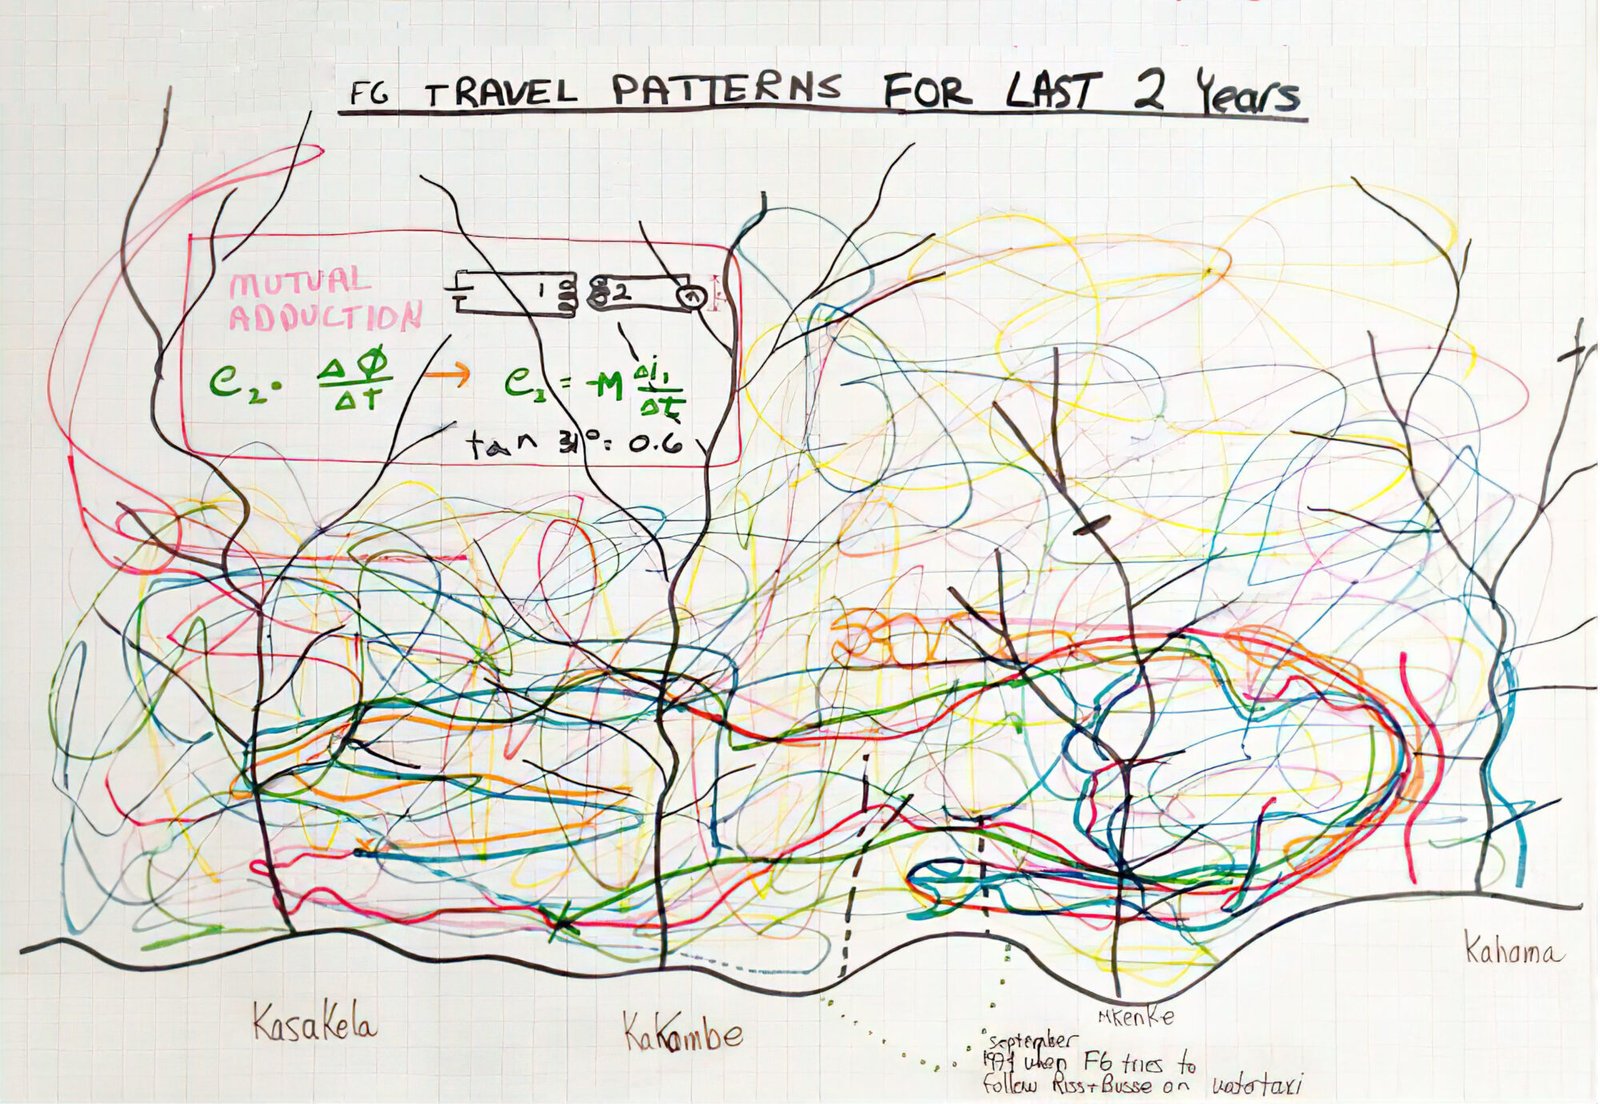 FG TRAVEL PATTERNS FOR LAST 2 Years
MUTUAL
ADDUCTION
1
2
e₂ · ΔΦ/ΔT → e₂ = -M Δi₁/Δt
tan 31° = 0.6
Kahama
Kasakela
Kakombe
MKenKe
September
1974 when FG tries to
follow Riss + Busse on watertaxi